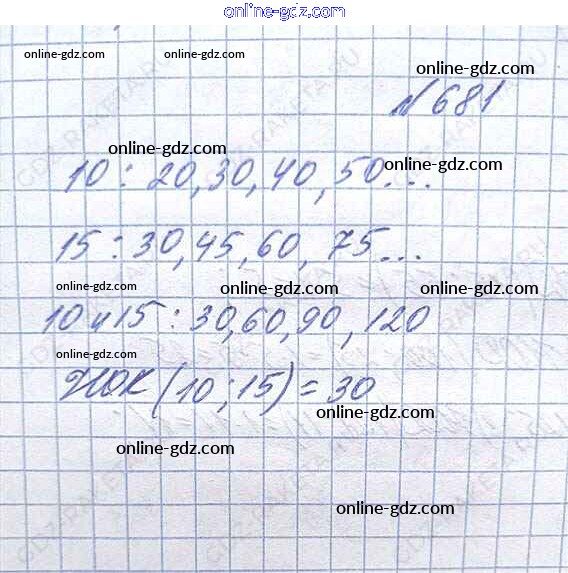 online-gdz.com
online-gdz.com online-gdz.com
online-gdz.com
№681
online-gdz.com
online-gdz.com
10: 20,30,40,50...
15:30,45,60, 75...
online-gdz.com online-gdz.com
10 и 15:30,60,90,120
online-gdz.com
НОК(10;15)=30
online-gdz.com
online-gdz.com
online-gdz.com
GDZ-RAKETA.RU